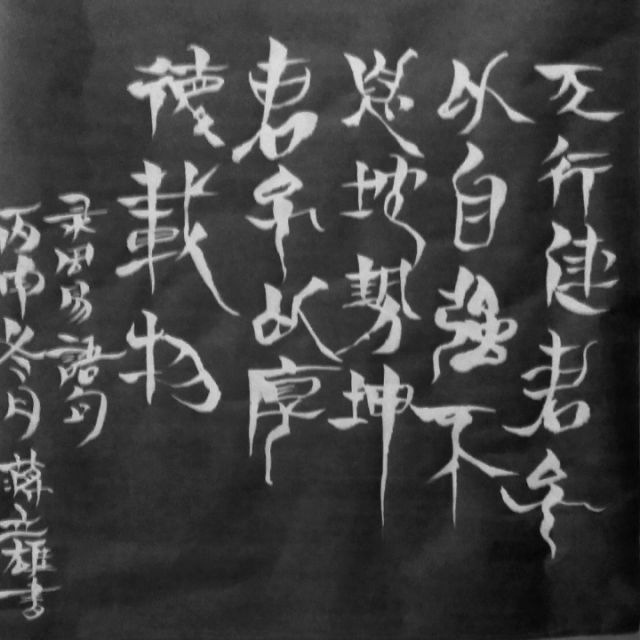 天行健君子
以自强不
息地勢坤
君子以厚
德載物
录周易語句
丙申冬月蒋立雄書